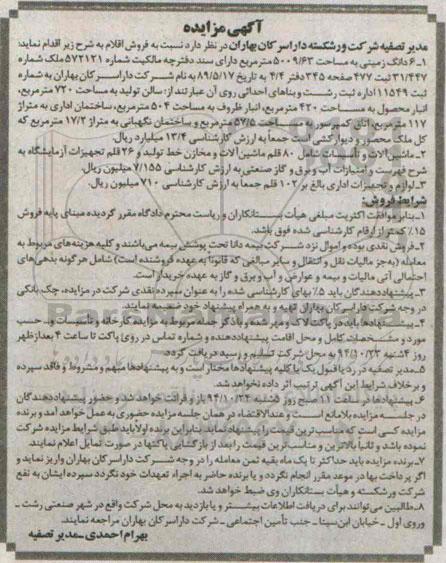 آگهی مزایده
مدیر تصفیه شرکت ورشکسته داراسرکان بهاران در نظر دارد نسبت به فروش اقلام به شرح زیر اقدام نماید:
۱ـ ۶ دانگ زمینی به مساحت ۵۰۰۹/۶۳ مترمربع دارای سند دفترچه مالکیت شماره ۵۷۲۱۲۱ ملک شماره
۳۱/۴۴۷ ثبت ۴۷۷ صفحه ۳۴۵ دفتر ۴/۴ به تاریخ ۸۹/۵/۱۷ به نام شرکت داراسرکان بهاران به شماره
ثبت ۱۱۵۴۹ اداره ثبت رشت و بناهای احداثی روی آن عبارتند از: سالن تولید به مساحت ۷۲۰ مترمربع،
انبار محصول به مساحت ۴۲۰ مترمربع، انبار ظروف به مساحت ۵۰۴ مترمربع، ساختمان اداری به متراژ
۱۱۷ مترمربع، اتاق کمپرسور به مساحت ۵۷/۵ مترمربع و ساختمان نگهبانی به متراژ ۱۷/۲ مترمربع که
کل ملک محصور و دیوارکشی است جمعاً به ارزش کارشناسی ۱۳/۴ میلیارد ریال.
۲ـ ماشین‌آلات و تأسیسات شامل ۸۰ قلم ماشین‌آلات و مخازن خط تولید و ۲۶ قلم تجهیزات آزمایشگاه به
شرح فهرست و امتیازات آب و برق و گاز صنعتی به ارزش کارشناسی ۷/۱۵۵ میلیون ریال.
۳ـ لوازم و تجهیزات اداری بالغ بر ۱۰۲ قلم جمعاً به ارزش کارشناسی ۷۱۰ میلیون ریال.
شرایط فروش:
۱ـ بنابر موافقت اکثریت مبلغی هیأت بستانکاران و ریاست محترم دادگاه مقرر گردیده مبنای پایه فروش
۱۵٪ کمتر از ارقام کارشناسی شده فوق باشد.
۲ـ فروش نقدی بوده و اموال نزد شرکت بیمه دانا تحت پوشش بیمه می‌باشند و کلیه هزینه‌های مربوط به
معامله (به‌جز مالیات نقل و انتقال و سایر مبالغی که قانوناً به عهده فروشنده است) شامل هر گونه بدهی‌های
احتمالی آتی مالیات و بیمه و عوارض و آب و برق و گاز به عهده خریدار است.
۳ـ پیشنهاددهندگان باید ۵٪ بهای کارشناسی شده را به عنوان سپرده نقدی شرکت در مزایده، چک بانکی
در وجه شرکت داراسرکان بهاران تهیه و به همراه پیشنهاد خود ضمیمه نمایند.
۴ـ پیشنهادها باید در پاکت لاک و مهر شده و با ذکر جمله مربوط به مزایده کارخانه و تأسیسات و... حسب
مورد و مشخصات کامل و محل اقامت پیشنهاددهنده و شماره تماس در روی پاکت تا ساعت ۴ بعدازظهر
روز ۴شنبه ۹۴/۱۰/۲۳ به محل شرکت تسلیم و رسید دریافت گردد.
۵ـ مدیر تصفیه در رد یا قبول یک یا کلیه پیشنهادها مختار است و به پیشنهادها مبهم و مشروط و فاقد سپرده
و برخلاف شرایط این آگهی ترتیب اثر داده نخواهد شد.
۶ـ پیشنهادها در ساعت ۱۱ صبح روز ۵شنبه ۹۴/۱۰/۲۴ باز و قرائت خواهد شد و حضور پیشنهاددهندگان
در جلسه مزایده بلامانع است و عندالاقتضاء در همان جلسه مزایده حضوری به عمل خواهد آمد و برنده
مزایده کسی است که مناسب‌ترین قیمت را پیشنهاد نماید بنابراین برنده اولاً باید طبق شرایط مزایده شرکت
نموده باشد و ثانیاً بالاترین و مناسب‌ترین قیمت را بعد از بازگشایی پاکتها در صورت تمایل اعلام نمایند.
۷ـ برنده مزایده باید حداکثر تا یک ماه بقیه ثمن معامله را در وجه شرکت داراسرکان بهاران واریز نماید و
اگر پرداخت بها در موعد مقرر انجام نگردد و یا برنده حاضر به اجراء تعهدات خود نگردد سپرده ایشان به نفع
شرکت ورشکسته و هیأت بستانکاران وی ضبط خواهد شد.
۸ـ طالبین می‌توانند برای دریافت اطلاعات بیشتر و یا بازدید به محل شرکت واقع در شهر صنعتی رشت ـ
ورودی اول ـ خیابان ابن‌سینا ـ جنب تأمین اجتماعی ـ شرکت داراسرکان بهاران مراجعه نمایند.
بهرام احمدی ـ مدیر تصفیه